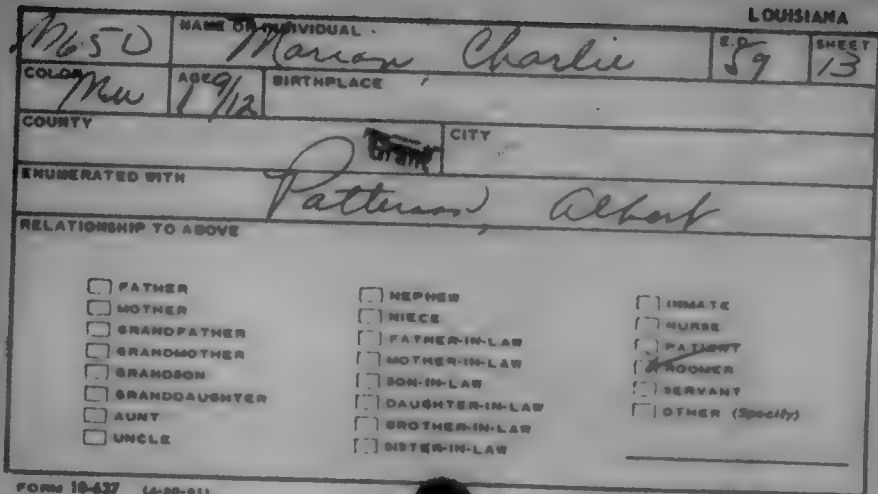 LOUISIANA
M650 NAME OF INDIVIDUAL Marian, Charlie E.D. 59 SHEET 13
COLOR Mu AGE 1 9/12 BIRTHPLACE
COUNTY Grant CITY
ENUMERATED WITH Patterson, Albert
RELATIONSHIP TO ABOVE
FATHER
MOTHER
GRANDFATHER
GRANDMOTHER
GRANDSON
GRANDDAUGHTER
AUNT
UNCLE
NEPHEW
NIECE
FATHER-IN-LAW
MOTHER-IN-LAW
SON-IN-LAW
DAUGHTER-IN-LAW
BROTHER-IN-LAW
SISTER-IN-LAW
INMATE
NURSE
PATIENT
ROOMER
SERVANT
OTHER (Specify)
FORM 10-637 (4-20-61)